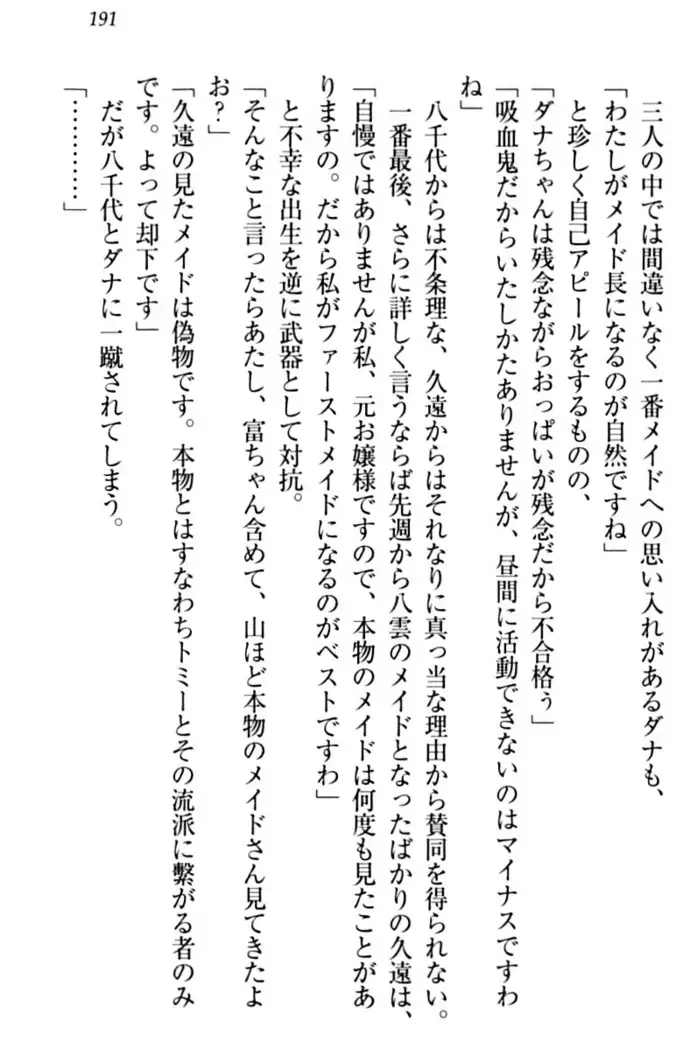 191
三人の中では間違いなく一番メイドへの思い入れがあるダナも、
「わたしがメイド長になるのが自然ですね」
と珍しく自己アピールをするものの、
「ダナちゃんは残念ながらおっぱいが残念だから不合格ぅ」
「吸血鬼だからいたしかたありませんが、昼間に活動できないのはマイナスですわ
ね」
八千代からは不条理な、久遠からはそれなりに真っ当な理由から賛同を得られない。
一番最後、さらに詳しく言うならば先週から八雲のメイドとなったばかりの久遠は、
「自慢ではありませんが私、元お嬢様ですので、本物のメイドは何度も見たことがあ
りますの。だから私がファーストメイドになるのがベストですわ」
と不幸な出生を逆に武器として対抗。
「そんなこと言ったらあたし、富ちゃん含めて、山ほど本物のメイドさん見てきたよ
お?」
「久遠の見たメイドは偽物です。本物とはすなわちトミーとその流派に繋がる者のみ
です。よって却下です」
だが八千代とダナに一蹴されてしまう。
「…………」